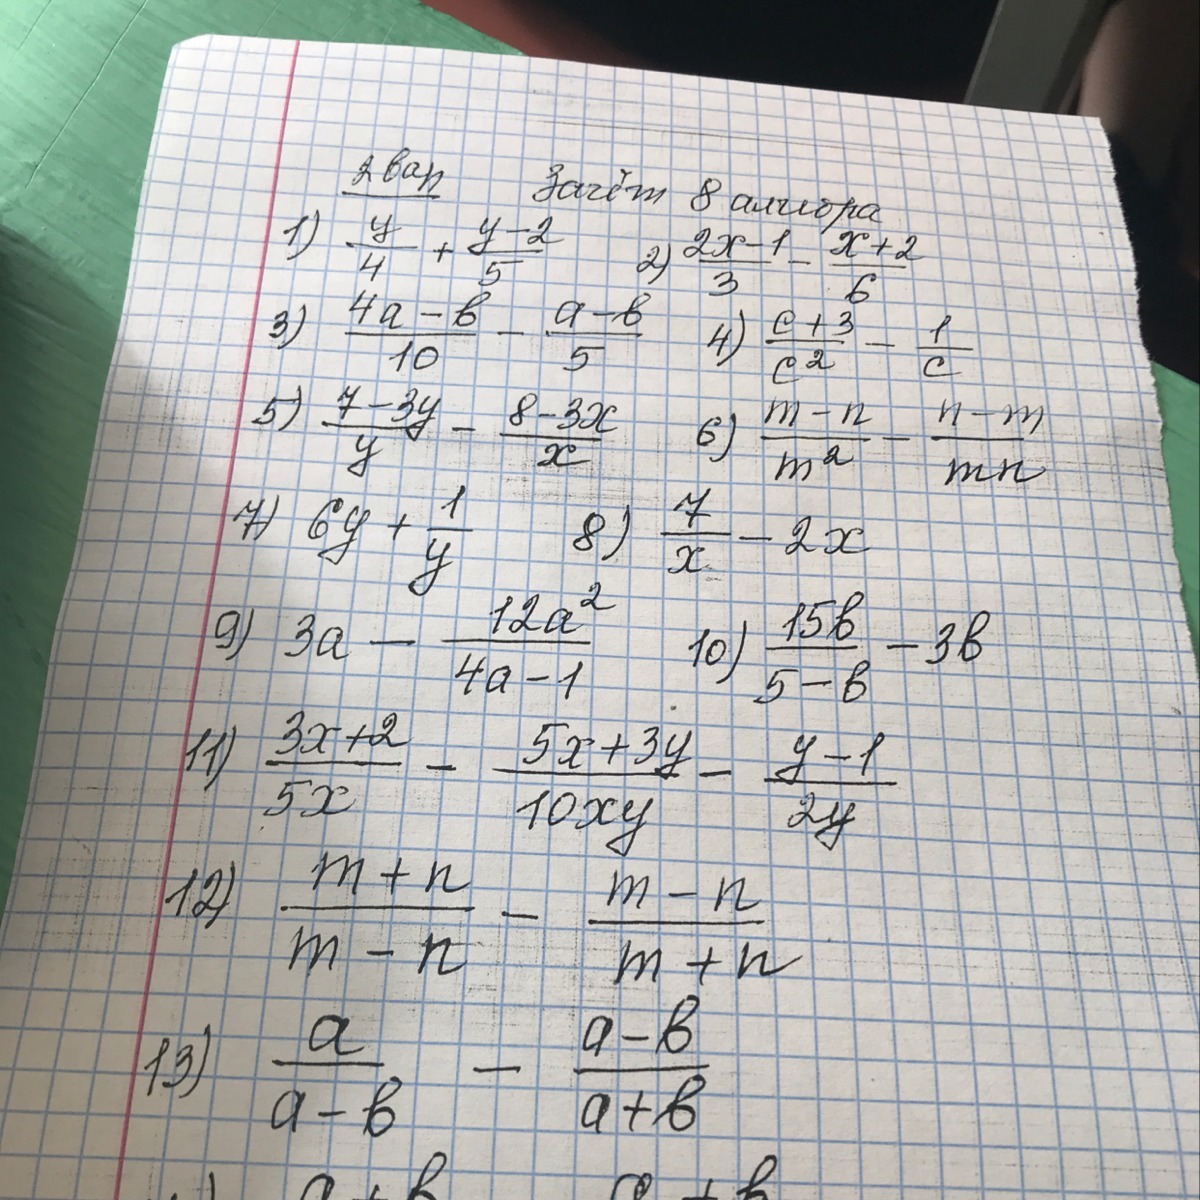 2 вар Зачёт 8 алгебра
1) y/4 + (y-2)/5 2) (2x-1)/3 - (x+2)/6
3) (4a-b)/10 - (a-b)/5 4) (c+3)/c² - 1/c
5) (7-3y)/y - (8-3x)/x 6) (m-n)/m² - (n-m)/mn
7) 6y + 1/y 8) 7/x - 2x
9) 3a - 12a²/(4a-1) 10) 15b/(5-b) - 3b
11) (3x+2)/5x - (5x+3y)/10xy - (y-1)/2y
12) (m+n)/(m-n) - (m-n)/(m+n)
13) a/(a-b) - (a-b)/(a+b)